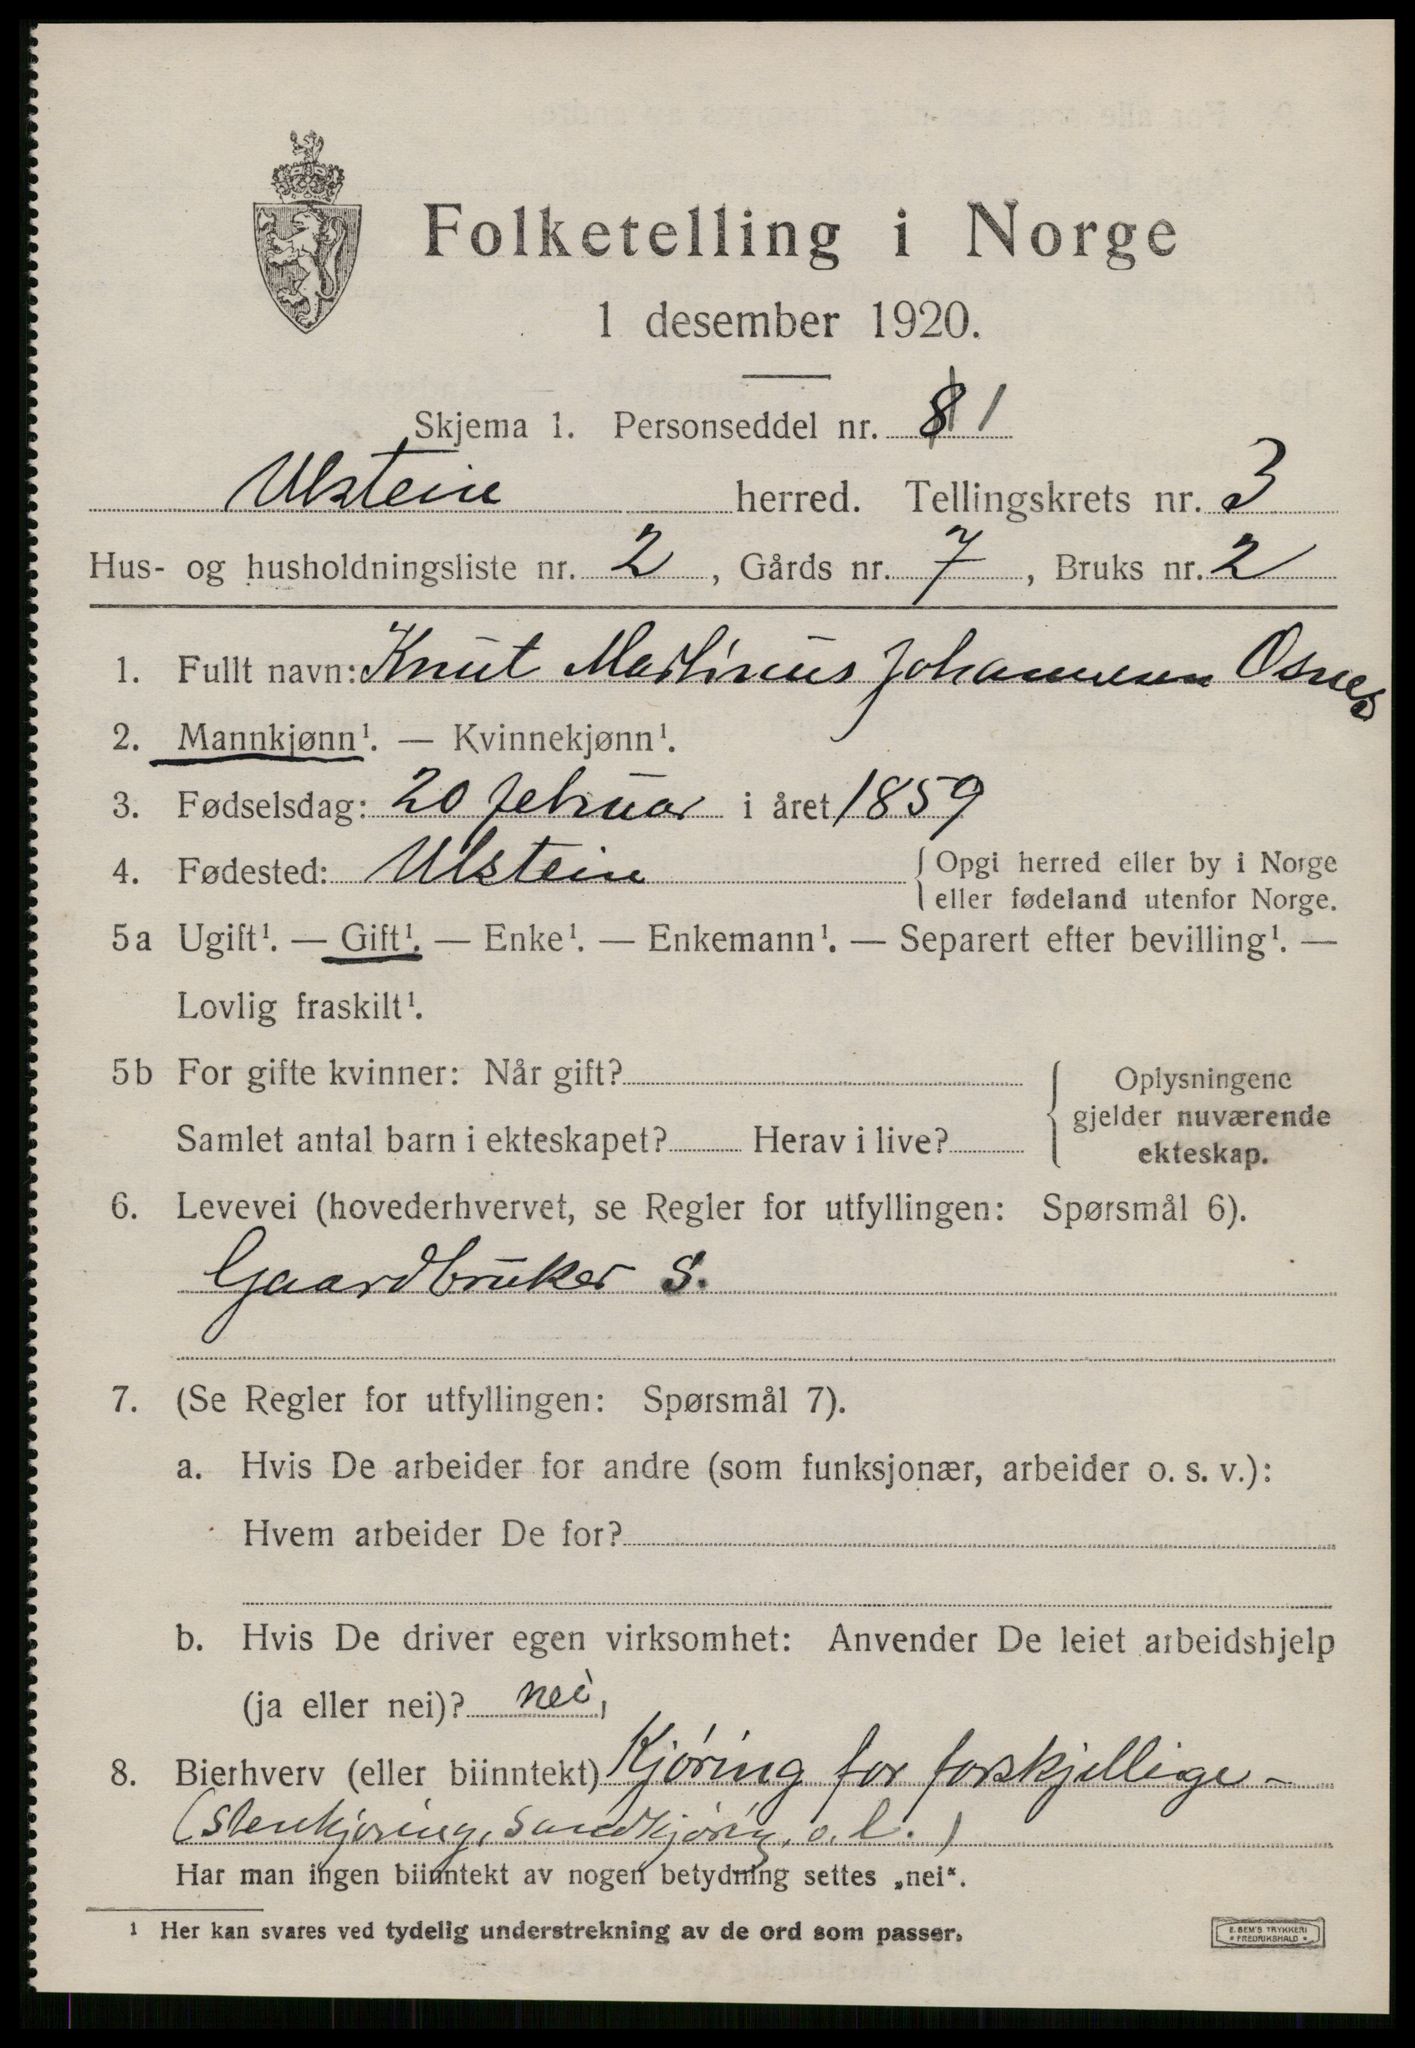 Folketelling i Norge
1 desember 1920.
Skjema 1. Personseddel nr. 1
Ulstein herred. Tellingskrets nr. 3
Hus- og husholdningsliste nr. 2, Gårds nr. 7, Bruks nr. 2
1. Fullt navn: Knut Martinus Johannesen Osnes
2. Mannkjønn¹. — Kvinnekjønn¹.
3. Fødselsdag: 20 februar i året 1859
4. Fødested: Ulstein { Opgi herred eller by i Norge
eller fødeland utenfor Norge.
5a Ugift¹. — Gift¹. — Enke¹. — Enkemann¹. — Separert efter bevilling¹. —
Lovlig fraskilt¹.
5b For gifte kvinner: Når gift?
Samlet antal barn i ekteskapet? Herav i live?
Oplysningene
gjelder nuværende
ekteskap.
6. Levevei (hovederhvervet, se Regler for utfyllingen: Spørsmål 6).
Gaardbruker S.
7. (Se Regler for utfyllingen: Spørsmål 7).
a. Hvis De arbeider for andre (som funksjonær, arbeider o. s. v.):
Hvem arbeider De for?
b. Hvis De driver egen virksomhet: Anvender De leiet arbeidshjelp
(ja eller nei)? nei,
8. Bierhverv (eller biinntekt) Kjøring for forskjellige -
(stenkjøring, sandkjøring, o. l.)
Har man ingen biinntekt av nogen betydning settes „nei“.
¹ Her kan svares ved tydelig understrekning av de ord som passer.
E. SEM'S TRYKKERI
• FREDRIKSHALD •